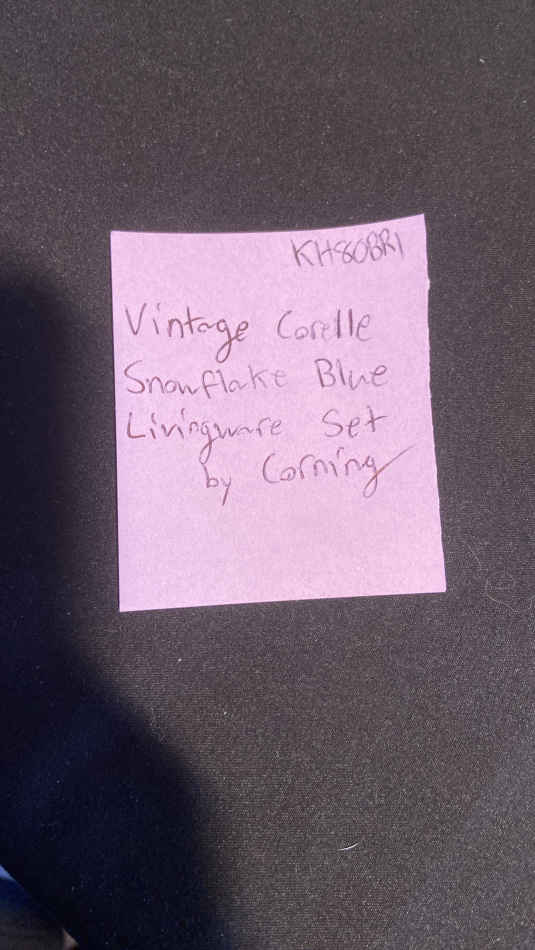 KH80BR1
Vintage Corelle
Snowflake Blue
Livingware Set
by Corning